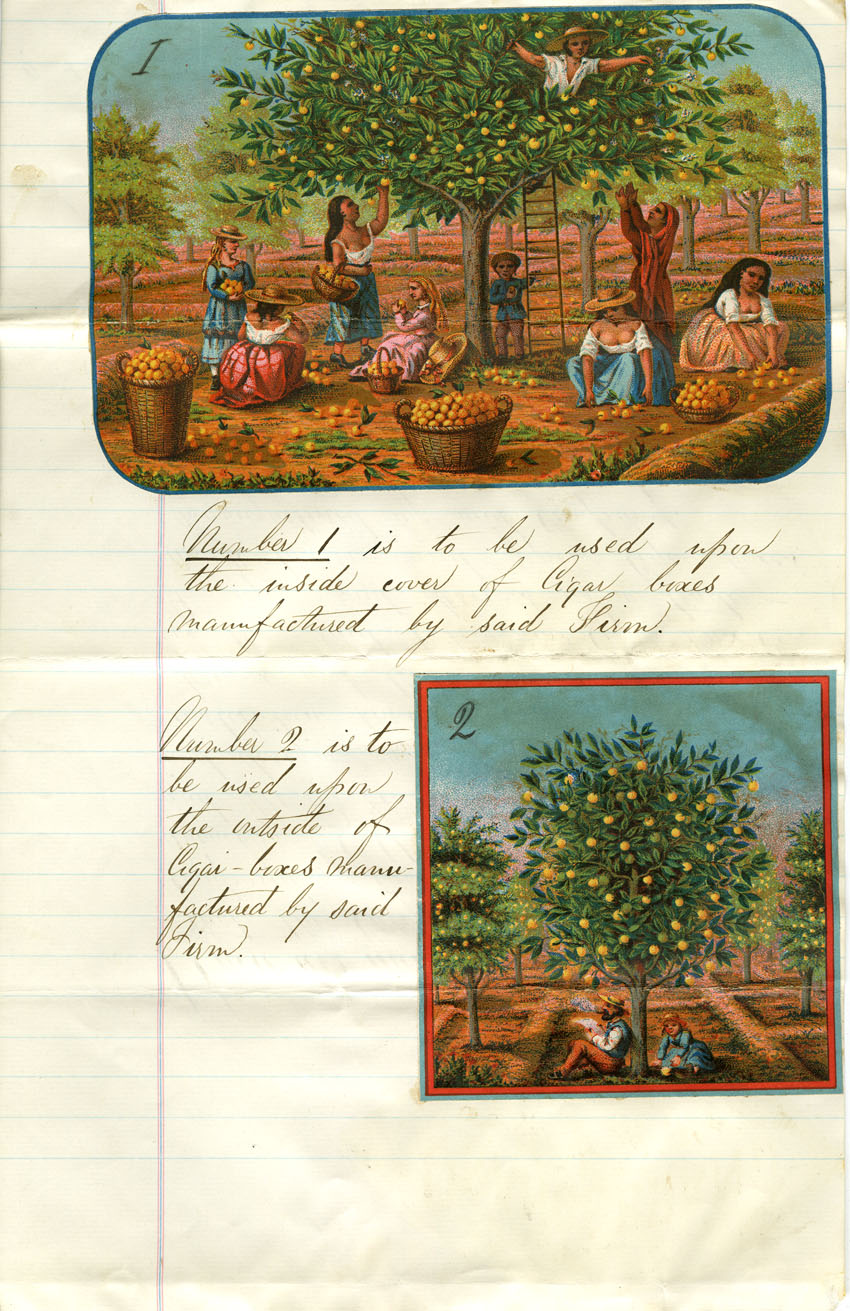 1
Number 1 is to be used upon
the inside cover of Cigar boxes
manufactured by said Firm.
2
Number 2 is to
be used upon
the outside of
Cigar-boxes manu-
factured by said
Firm.